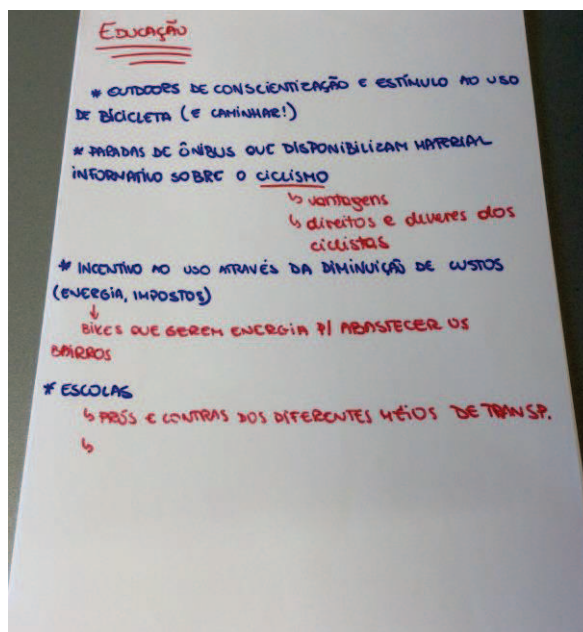 EDUCAÇÃO
* OUTDOORS DE CONSCIENTIZAÇÃO E ESTÍMULO AO USO
DE BICICLETA (E CAMINHAR!)
* PARADAS DE ÔNIBUS QUE DISPONIBILIZAM MATERIAL
INFORMATIVO SOBRE O CICLISMO
↳ vantagens
↳ direitos e deveres dos
ciclistas
* INCENTIVO AO USO ATRAVÉS DA DIMINUIÇÃO DE CUSTOS
(ENERGIA, IMPOSTOS)
↓
BIKES QUE GEREM ENERGIA P/ ABASTECER OS
BAIRROS
* ESCOLAS
↳ PRÓS E CONTRAS DOS DIFERENTES MEIOS DE TRANSP.
↳